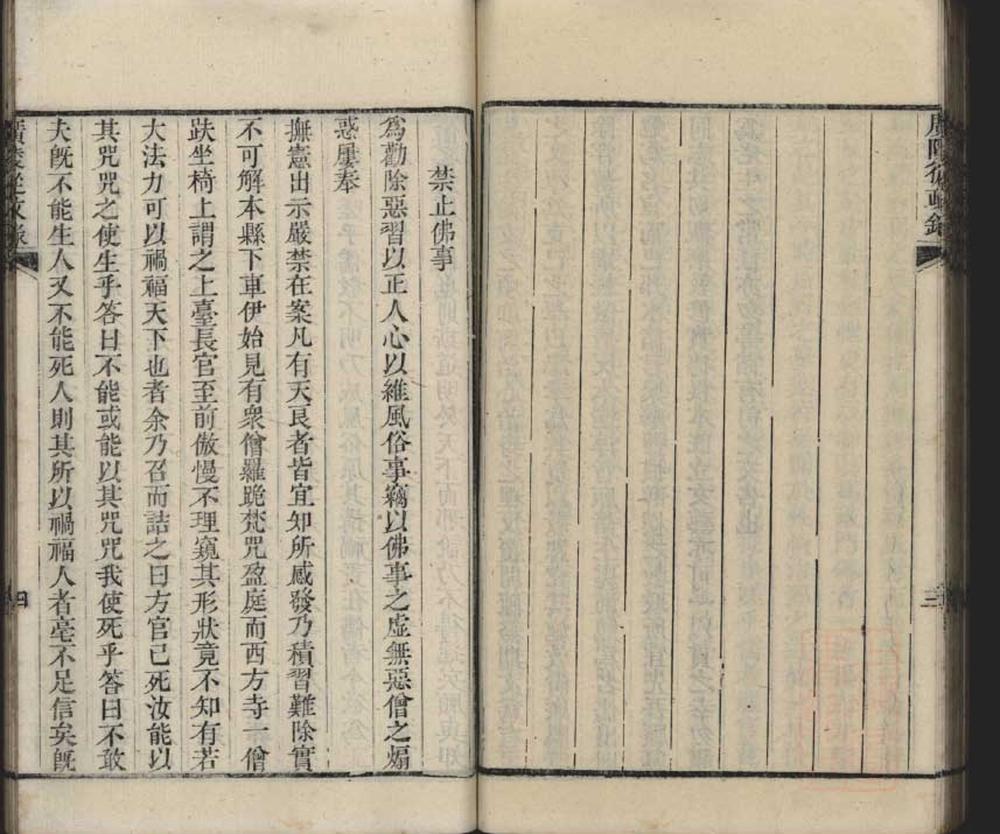 三
禁止佛事
爲勸除惡習以正人心以維風俗事竊以佛事之虛無惡僧之煽
惑屢奉
撫憲出示嚴禁在案凡有天良者皆宜知所感發乃積習難除實
不可解本縣下車伊始見有衆僧羅跪梵咒盈庭而西方寺一僧
趺坐椅上謂之上臺長官至前傲慢不理窺其形狀竟不知有若
大法力可以禍福天下也者余乃召而詰之曰方官已死汝能以
其咒咒之使生乎答曰不能或能以其咒咒我使死乎答曰不敢
夫旣不能生人又不能死人則其所以禍福人者毫不足信矣旣
四